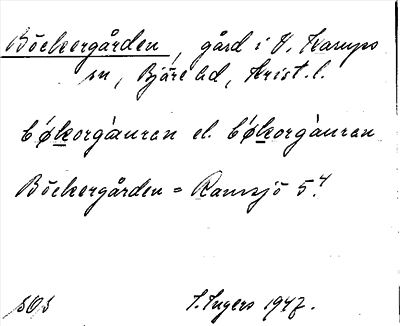 Böckergården, gård i V. Karups
sn, Bjäre hd, Krist. l.
b́ø̀korgàuran el. b́ø̀korgàuran
Böckergården = Ramsjö 5⁴.
SOs I. Ingers 1947.